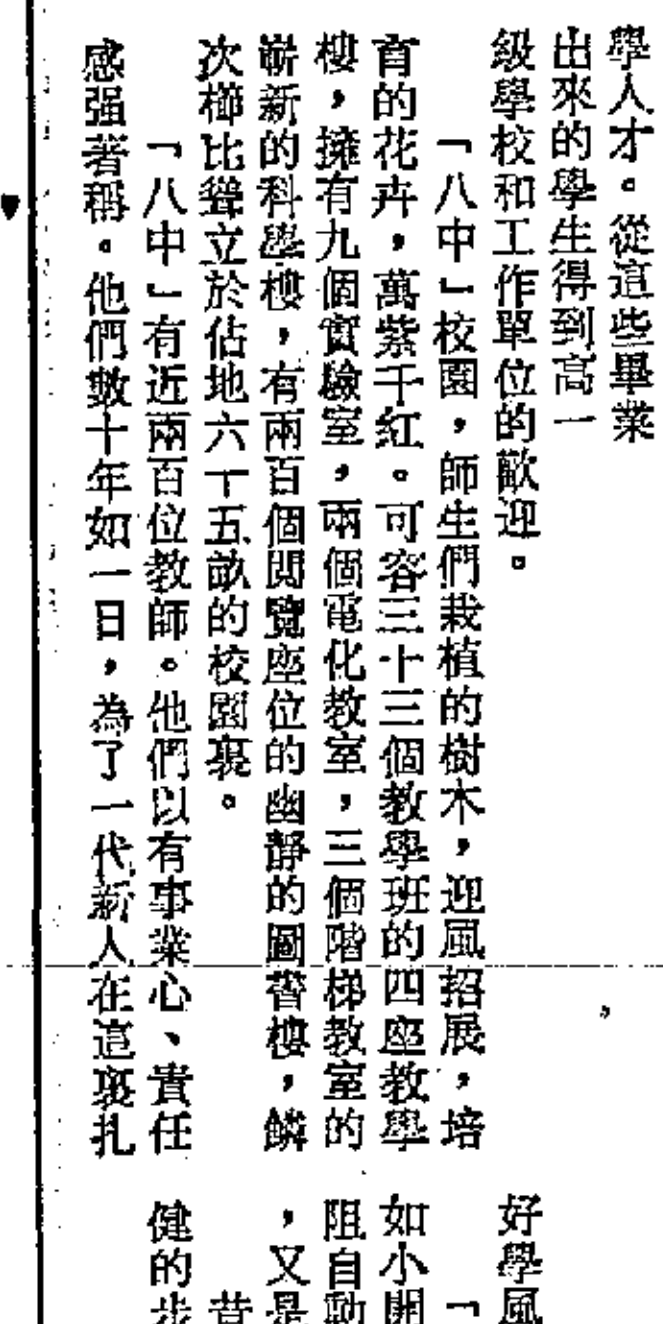 學人才。從這些畢業
出來的學生得到高一
級學校和工作單位的歡迎。
「八中」校園，師生們栽植的樹木，迎風招展，培
育的花卉，萬紫千紅。可容三十三個教學班的四座教學
樓，擁有九個實驗室，兩個電化教室，三個階梯教室的
嶄新的科學樓，有兩百個閱覽座位的幽靜的圖書樓，鱗
次櫛比聳立於佔地六十五畝的校園裏。
「八中」有近兩百位教師。他們以有事業心、責任
感强著稱。他們數十年如一日，為了一代新人在這裏扎
好學風
「
如小開
阻自動
，又是
昔
健的步